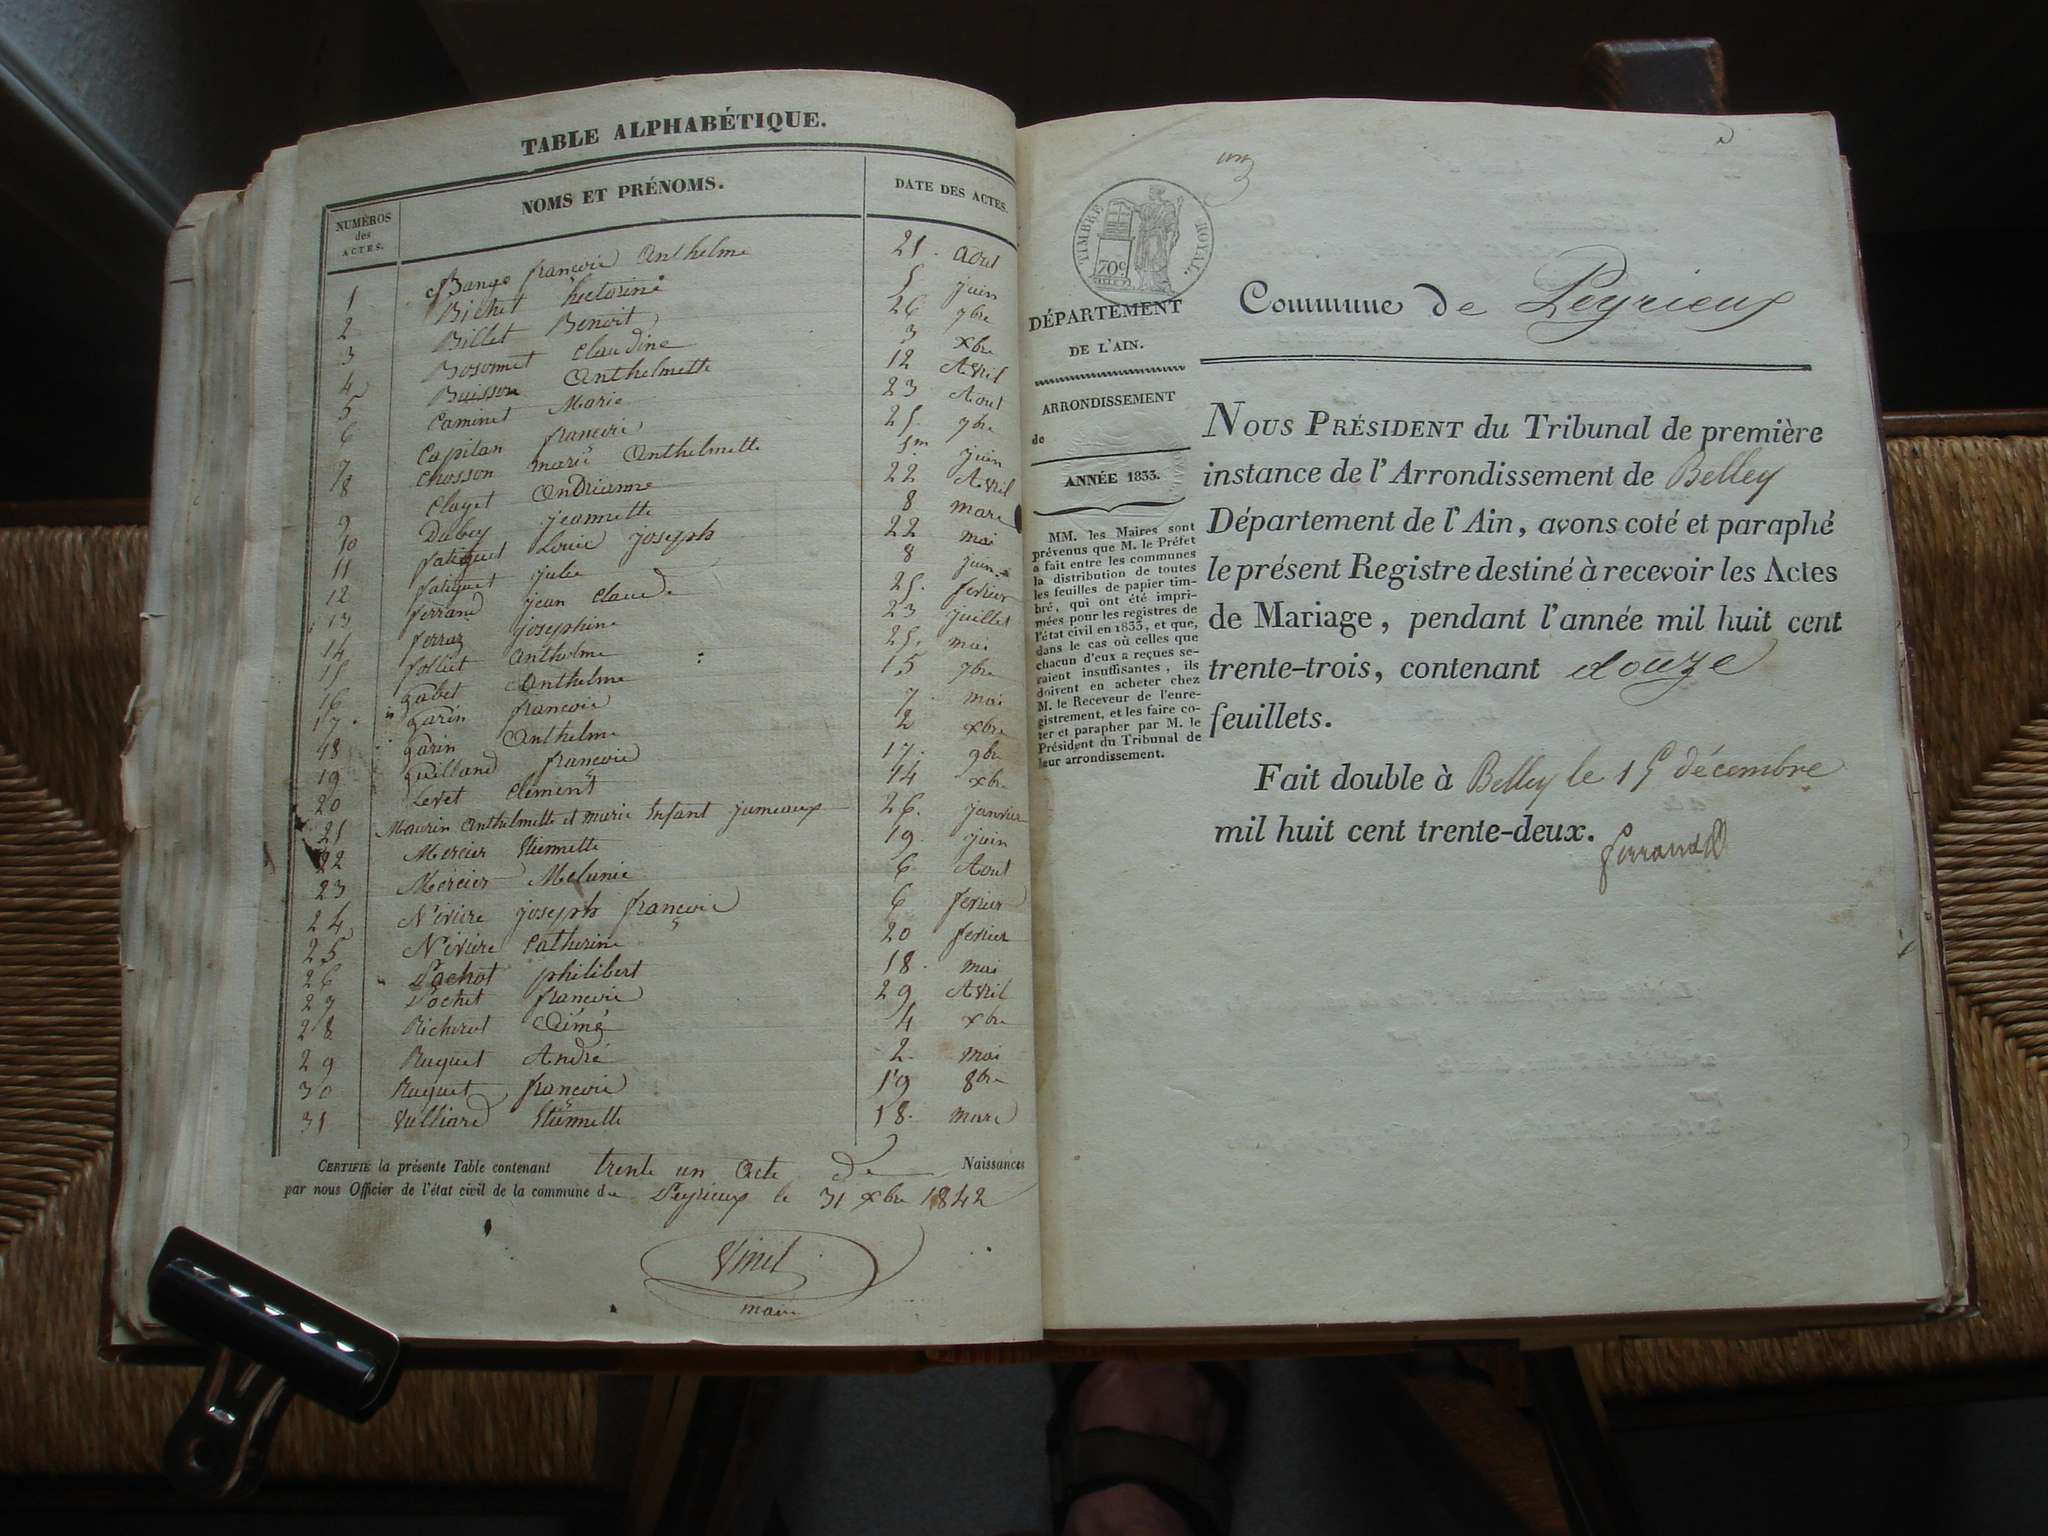 TABLE ALPHABÉTIQUE.
NUMÉROS des ACTES.
NOMS ET PRÉNOMS.
DATE DES ACTES.
1 Bange françois Anthelme 21. Aout
2 Bichet hectorine 5 juin
3 Billet Benoit 26 7bre
4 Bosonnet Claudine 3 xbre
5 Buisson Anthelmette 12 Avril
6 Caminet Marie 23 Aout
7 Capitan françois 25. 7bre
8 Chosson marie Anthelmette 1er juin
9 Clayet Andrianne 22 Avril
10 Dubey jeannette 8 mars
11 fatiguet Louis joseph 22 mai
12 fatiguet julie 8 juin
13 ferrand jean Claude 25. fevrier
14 ferraz josephine 23 juillet
15 folliet Anthelme 25. mai
16 gabet Anthelme 15 7bre
17 garin françois 7 mai
18 garin Anthelme 2 xbre
19 guilland françois 17. 9bre
20 Levet Clement 14 xbre
21 Maurin Anthelmette et marie Enfant jumeaux 26. janvier
22 Mercier Etiennette 19 juin
23 Mercier Melanie 6 Aout
24 Nivière joseph françois 6 fevrier
25 Nivière Catherine 20 fevrier
26 Pochot philibert 18. mai
27 Pochet françois 29 Avril
28 Richerot Aimé 4 xbre
29 Ruquet André 2. mai
30 Ruquet françois 19 8bre
31 Vulliard Etiennette 18. mars
CERTIFIÉ la présente Table contenant trente un Acte de Naissances
par nous Officier de l'état civil de la commune de Peyrieux le 31 xbre 1842
maire
TIMBRE ROYAL.
70c
DÉPARTEMENT
DE L'AIN.
ARRONDISSEMENT
de
ANNÉE 1833.
MM. les Maires sont
prévenus que M. le Préfet
a fait entre les communes
la distribution de toutes
les feuilles de papier tim-
bré, qui ont été impri-
mées pour les registres de
l'état civil en 1833, et que,
dans le cas où celles que
chacun d'eux a reçues se-
raient insuffisantes, ils
doivent en acheter chez
M. le Receveur de l'enre-
gistrement, et les faire co-
ter et parapher par M. le
Président du Tribunal de
leur arrondissement.
Commune de Peyrieux
NOUS PRÉSIDENT du Tribunal de première
instance de l'Arrondissement de Belley
Département de l'Ain, avons coté et paraphé
le présent Registre destiné à recevoir les Actes
de Mariage, pendant l'année mil huit cent
trente-trois, contenant douze
feuillets.
Fait double à Belley le 15 décembre
mil huit cent trente-deux.
ferrand